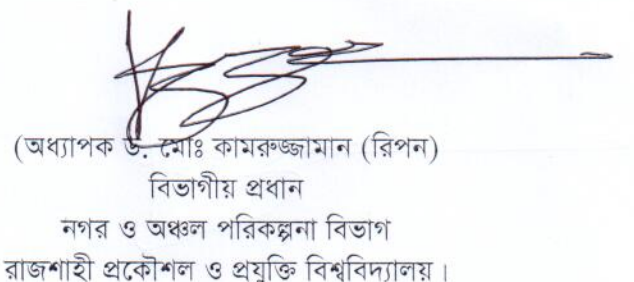 (অধ্যাপক ড. মোঃ কামরুজ্জামান (রিপন)
বিভাগীয় প্রধান
নগর ও অঞ্চল পরিকল্পনা বিভাগ
রাজশাহী প্রকৌশল ও প্রযুক্তি বিশ্ববিদ্যালয়।